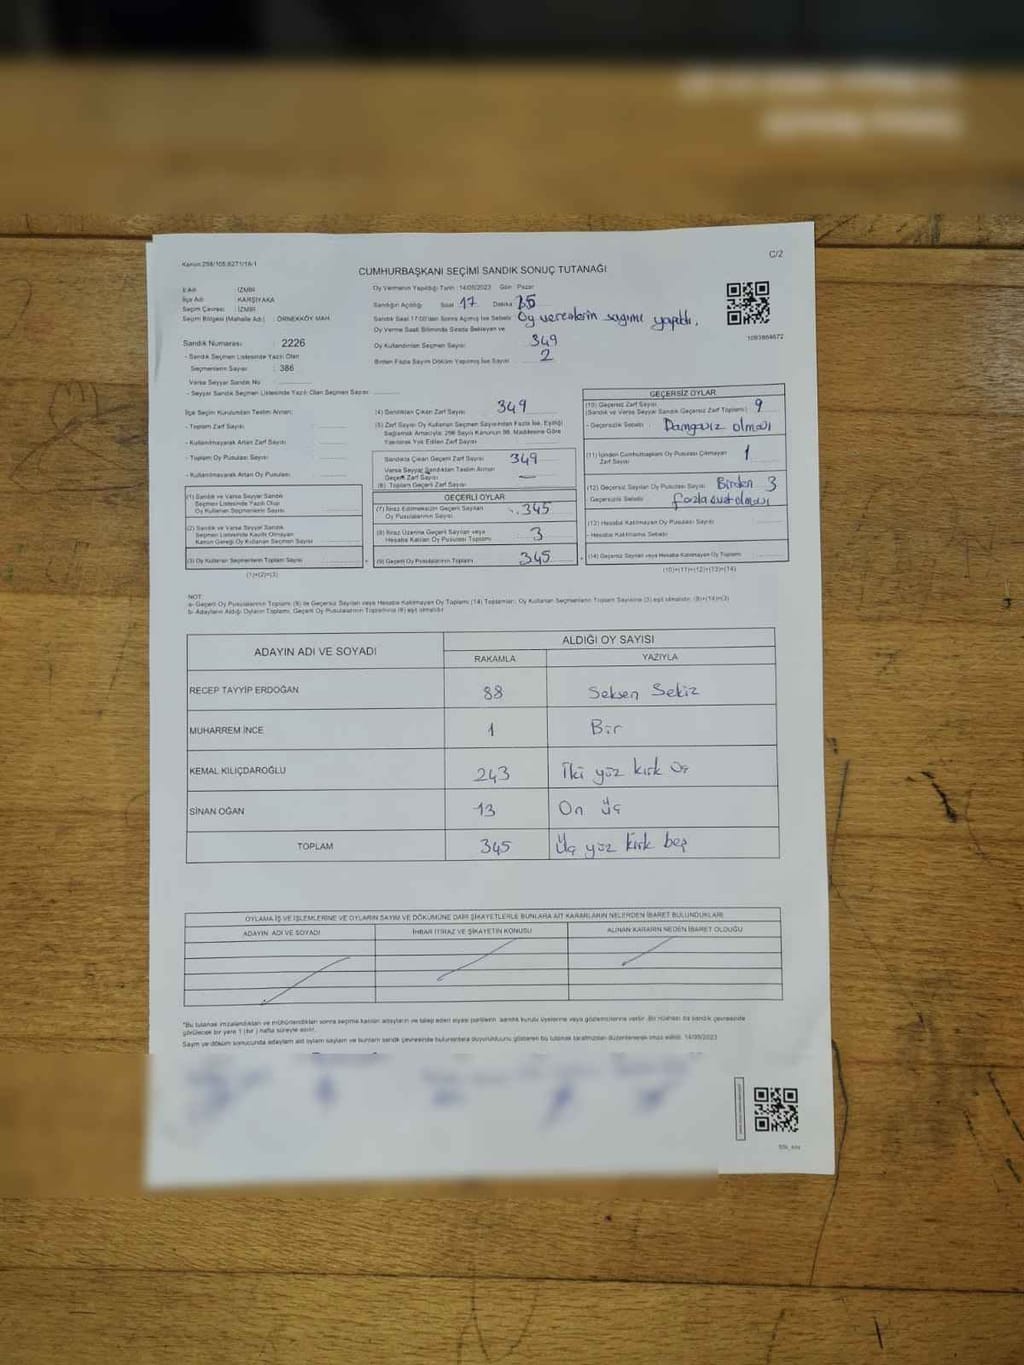 Kanun:298/105,6271/16-1
C/2
CUMHURBAŞKANI SEÇİMİ SANDIK SONUÇ TUTANAĞI
İl Adı : İZMİR
İlçe Adı : KARŞIYAKA
Seçim Çevresi : İZMİR
Seçim Bölgesi (Mahalle Adı) : ÖRNEKKÖY MAH.
Oy Vermenin Yapıldığı Tarih :14/05/2023 Gün : Pazar
Sandığın Açıldığı Saat : 17 Dakika
Sandık Saat 17:00'den Sonra Açılmış İse Sebebi : Oy verenlerin sayımı yapıldı.
Oy Verme Saati Bitiminde Sırada Bekleyen ve
Oy Kullandırılan Seçmen Sayısı : 349
Birden Fazla Sayım Döküm Yapılmış İse Sayısı : 2
1093864672
Sandık Numarası : 2226
- Sandık Seçmen Listesinde Yazılı Olan
Seçmenlerin Sayısı : 386
Varsa Seyyar Sandık No :
- Seyyar Sandık Seçmen Listesinde Yazılı Olan Seçmen Sayısı :
İlçe Seçim Kurulundan Teslim Alınan;
- Toplam Zarf Sayısı :
- Kullanılmayarak Artan Zarf Sayısı :
- Toplam Oy Pusulası Sayısı :
- Kullanılmayarak Artan Oy Pusulası :
(1) Sandık ve Varsa Seyyar Sandık
Seçmen Listesinde Yazılı Olup
Oy Kullanan Seçmenlerin Sayısı :
(2) Sandık ve Varsa Seyyar Sandık
Seçmen Listesinde Kayıtlı Olmayan
Kanun Gereği Oy Kullanan Seçmen Sayısı :
(3) Oy Kullanan Seçmenlerin Toplam Sayısı :
(1)+(2)=(3)
(4) Sandıktan Çıkan Zarf Sayısı : 349
(5) Zarf Sayısı Oy Kullanan Seçmen Sayısından Fazla İse, Eşitliği
Sağlamak Amacıyla; 298 Sayılı Kanunun 98. Maddesine Göre
Yakılarak Yok Edilen Zarf Sayısı :
Sandıkta Çıkan Geçerli Zarf Sayısı : 349
Varsa Seyyar Sandıktan Teslim Alınan
Geçerli Zarf Sayısı : —
(6) Toplam Geçerli Zarf Sayısı :
GEÇERLİ OYLAR
(7) İtiraz Edilmeksizin Geçerli Sayılan
Oy Pusulalarının Sayısı : 345
(8) İtiraz Üzerine Geçerli Sayılan veya
Hesaba Katılan Oy Pusulası Toplamı : 3
(9) Geçerli Oy Pusulalarının Toplamı : 345
GEÇERSİZ OYLAR
(10) Geçersiz Zarf Sayısı
(Sandık ve Varsa Seyyar Sandık Geçersiz Zarf Toplamı) : 9
- Geçersizlik Sebebi : Damgasız olması
(11) İçinden Cumhurbaşkanı Oy Pusulası Çıkmayan
Zarf Sayısı : 1
(12) Geçersiz Sayılan Oy Pusulası Sayısı : Birden 3
- Geçersizlik Sebebi : fazla olması
(13) Hesaba Katılmayan Oy Pusulası Sayısı :
- Hesaba Katılmama Sebebi :
(14) Geçersiz Sayılan veya Hesaba Katılmayan Oy Toplamı :
(10)+(11)+(12)+(13)=(14)
NOT:
a- Geçerli Oy Pusulalarının Toplamı (9) ile Geçersiz Sayılan veya Hesaba Katılmayan Oy Toplamı (14) Toplamları; Oy Kullanan Seçmenlerin Toplam Sayısına (3) eşit olmalıdır. (9)+(14)=(3)
b- Adayların Aldığı Oyların Toplamı, Geçerli Oy Pusulalarının Toplamına (9) eşit olmalıdır.
ADAYIN ADI VE SOYADI
ALDIĞI OY SAYISI
RAKAMLA YAZIYLA
RECEP TAYYİP ERDOĞAN 88 Seksen Sekiz
MUHARREM İNCE 1 Bir
KEMAL KILIÇDAROĞLU 243 İki yüz kırk üç
SİNAN OĞAN 13 On üç
TOPLAM 345 Üç yüz kırk beş
OYLAMA İŞ VE İŞLEMLERİNE VE OYLARIN SAYIM VE DÖKÜMÜNE DAİR ŞİKAYETLERLE BUNLARA AİT KARARLARIN NELERDEN İBARET BULUNDUKLARI
ADAYIN ADI VE SOYADI İHBAR İTİRAZ VE ŞİKAYETİN KONUSU ALINAN KARARIN NEDEN İBARET OLDUĞU
*Bu tutanak imzalandıktan ve mühürlendikten sonra seçime katılan adayların ve talep eden siyasi partilerin sandık kurulu üyelerine veya gözlemcilerine verilir. Bir nüshası da sandık çevresinde
görülecek bir yere 1 (bir) hafta süreyle asılır.
Sayım ve döküm sonucunda adayların aldığı oyların sayısını ve bunların sandık çevresinde bulunanlara duyurulduğunu gösteren bu tutanak tarafımızdan düzenlenerek imza edildi. 14/05/2023